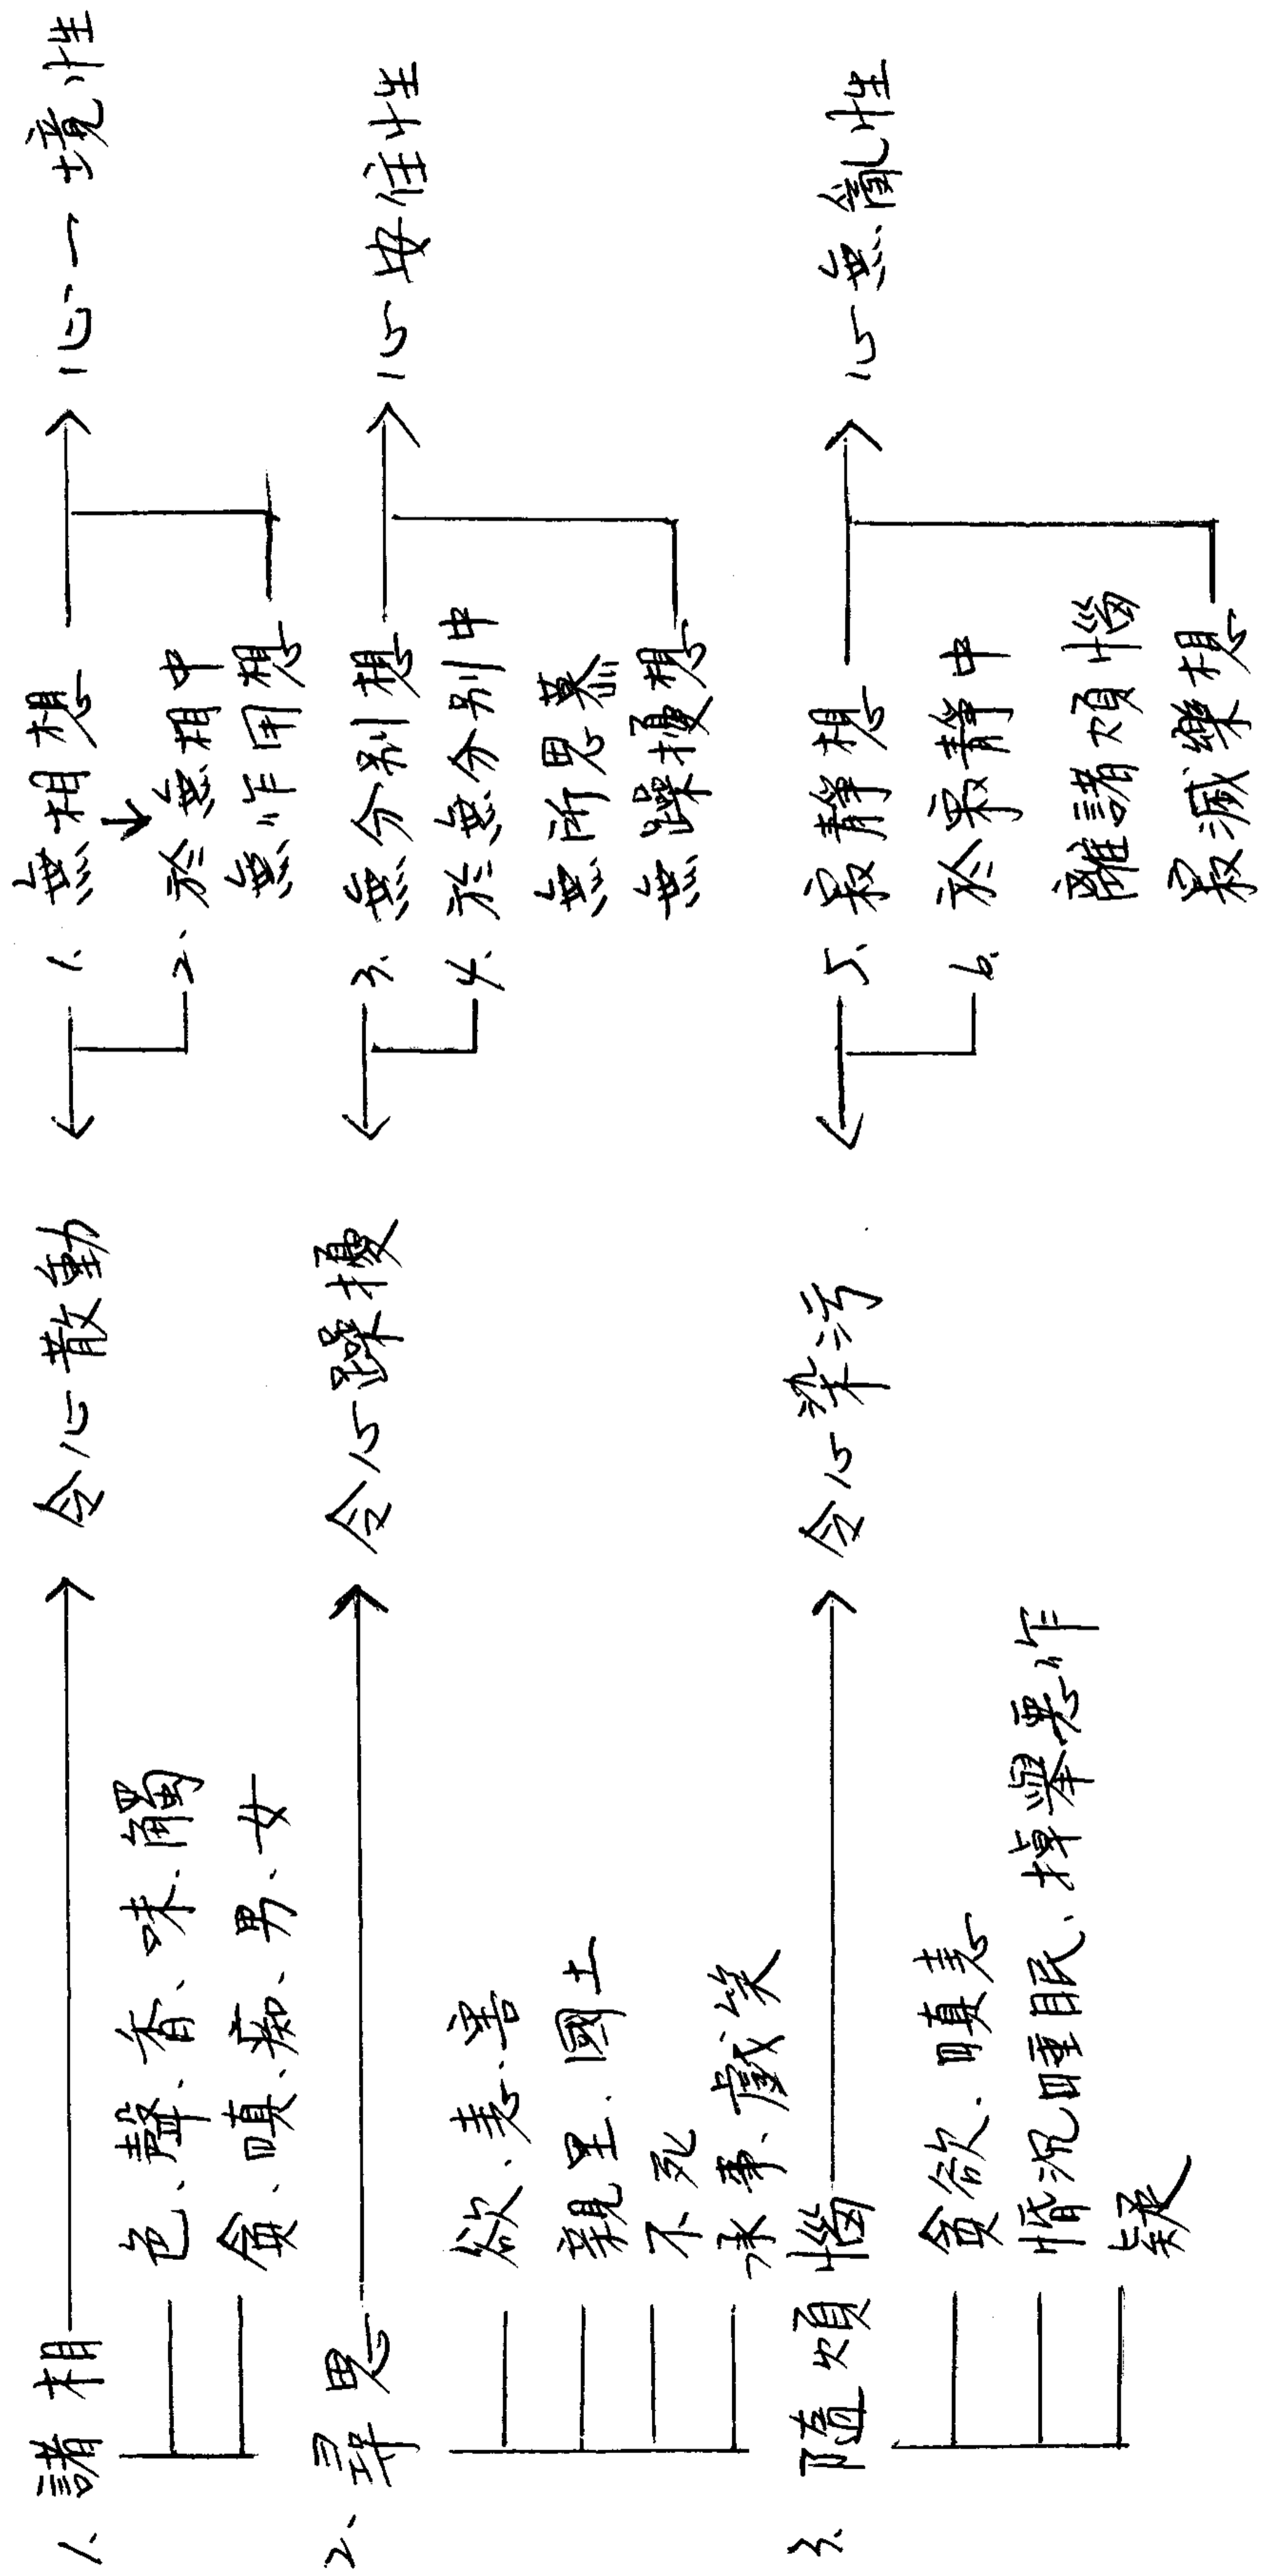 1、諸相 → 令心散動 ← 1、無相想 → 心一境性
色、聲、香、味、觸
貪、嗔、痴、男、女
2、於無相中
無作用想
2、尋思 → 令心躁擾 ← 3、無分別想 → 心安住性
欲、恚、害
親里、國土
不死
承事、戲笑
4、於無分別中
無所思慕
無躁擾想
3、隨煩惱 → 令心染污 ← 5、寂靜想 → 心無亂性
貪欲、嗔恚
惛沉睡眠、掉舉惡作
疑
6、於寂靜中
離諸煩惱
寂滅樂想